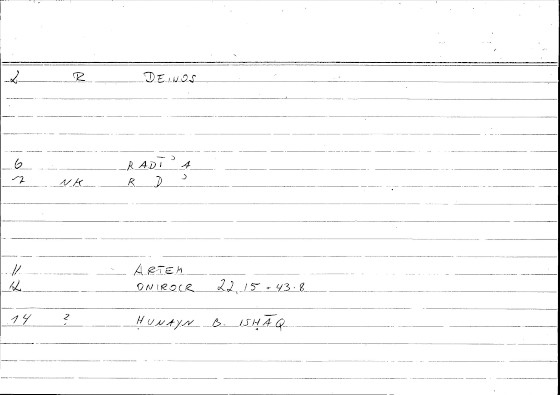 2 R DEINOS
6 RADĪʾA
7 NK R D ʾ
11 ARTEM
12 ONIROCR 22,15 = 43.8
14 ? ḤUNAYN B. ISḤĀQ